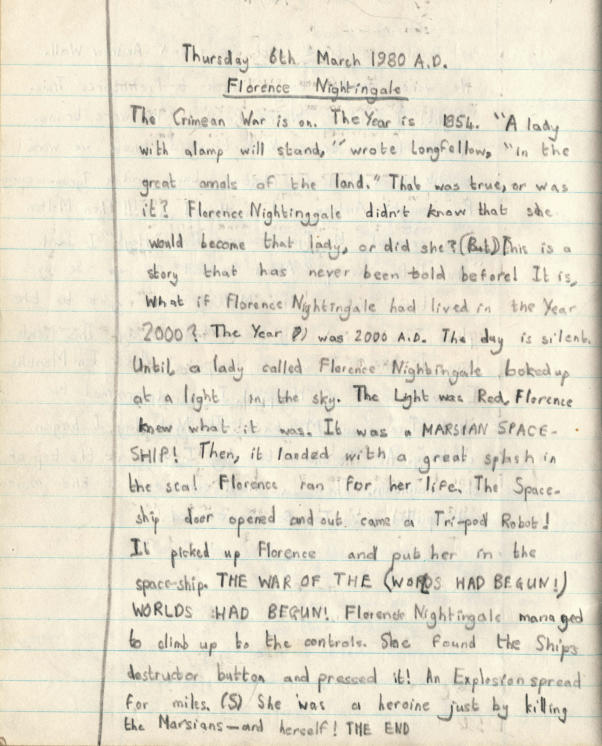 Thursday 6th March 1980 A.D.
Florence Nightingale
The Crimean War is on. The Year is 1854. "A lady
with alamp will stand," wrote Longfellow, "in the
great annals of the land." That was true, or was
it? Florence Nightinggale didn't know that she
would become that lady, or did she? (But) This is a
story that has never been told before! It is,
What if Florence Nightingale had lived in the Year
2000? The Year was 2000 A.D. The day is silent.
Until, a lady called Florence Nightingale looked up
at a light in the sky. The Light was Red, Florence
knew what it was. It was a MARSIAN SPACE-
SHIP! Then, it landed with a great splash in
the sea! Florence ran for her life. The Space-
ship door opened and out came a Tri-pod Robot!
It picked up Florence and put her in the
space-ship. THE WAR OF THE (WORDS HAD BEGUN!)
WORLDS HAD BEGUN! Florence Nightingale managed
to climb up to the controls. She found the Ships
destructor button and pressed it! An Explosion spread
for miles. (S) She was a heroine just by killing
the Marsians—and herself! THE END